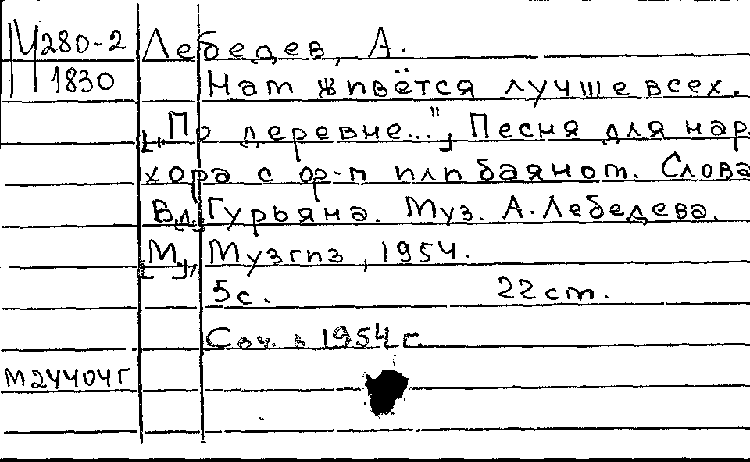 М280-2 Лебедев, А.
1830 Нам живётся лучше всех.
[„По деревне..."] Песня для нар.
хора с ф-п или баяном. Слова
Вл. Гурьяна. Муз. А. Лебедева.
[М], Музгиз, 1954.
5с. 22см.
Соч. в 1954 г.
М24404г